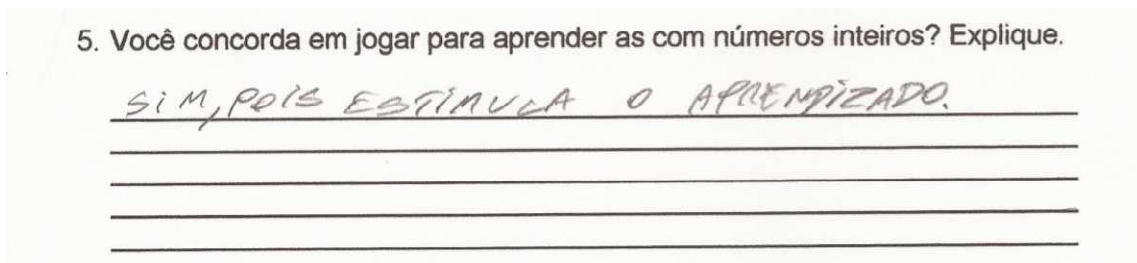 5. Você concorda em jogar para aprender as com números inteiros? Explique.
SiM, POIS ESTIMULA O APRENDIZADO.